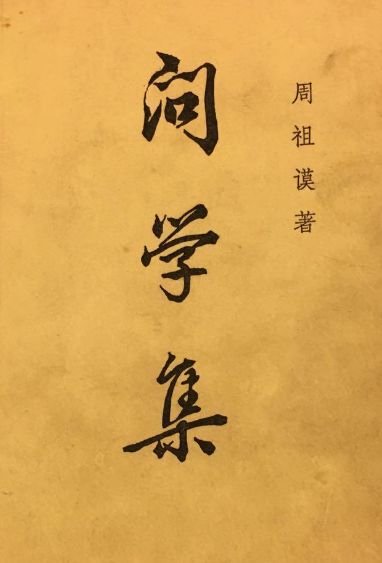 周祖谟著
问学集